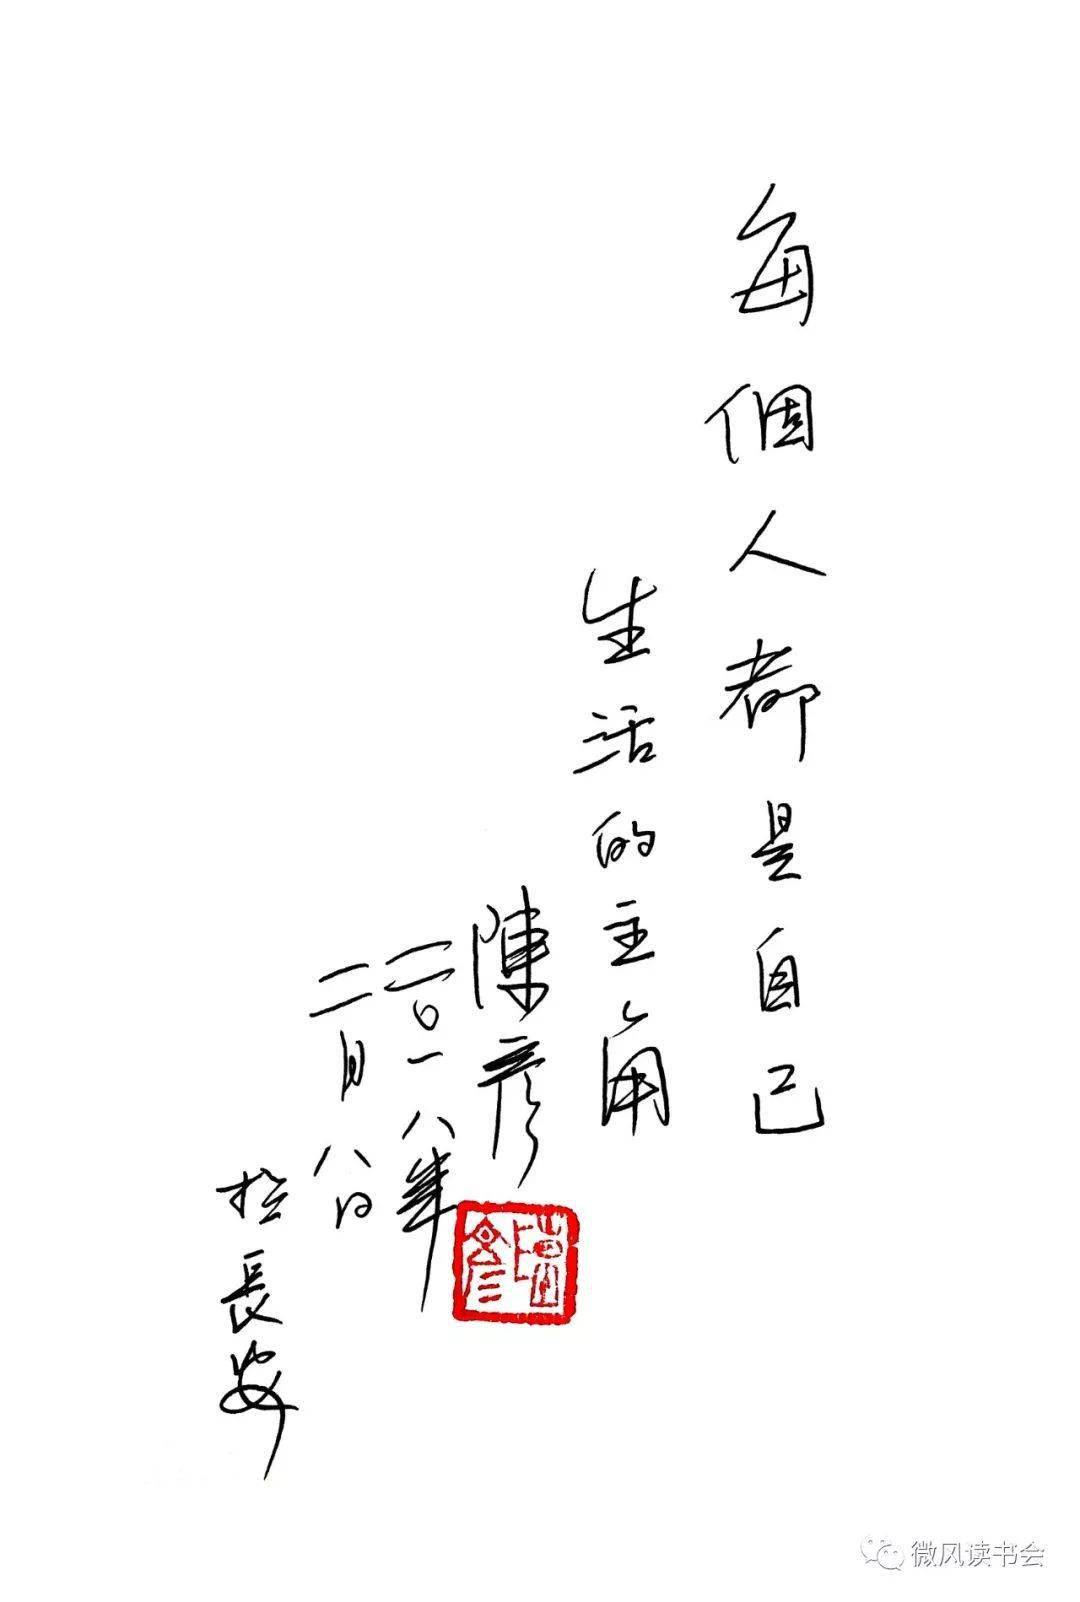 每個人都是自己
生活的主角
陳彦
二〇一八年
二月八日
於長安
陳彦
微风读书会